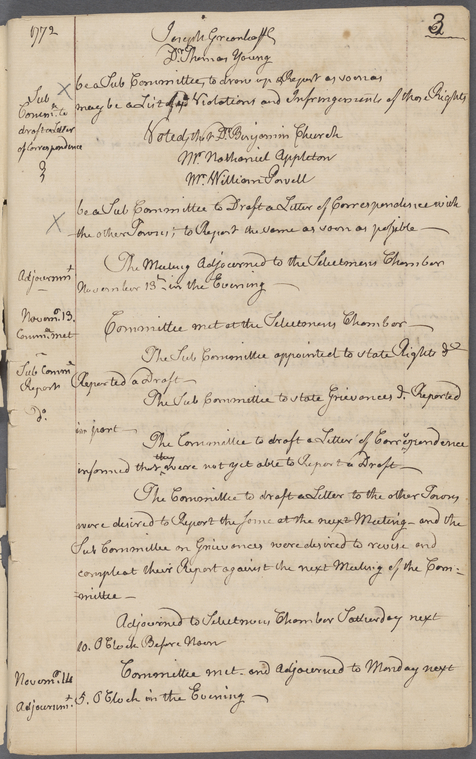 1772
3
Joseph Greenleaffe
Dr. Thomas Young
be a Sub Committee, to draw up & Report as soon as
may be a List of Violations and Infringements of those Rights
Sub
Commtt. to
draft a Letter
of Correspondence
Voted, that Dr. Benjamin Church
Mr. Nathaniel Appleton
Mr. William Powell
be a Sub Committee to Draft a Letter of Correspondence with
the other Towns; to Report the same as soon as possible
Adjournmt.
The Meeting Adjourned to the Selectmens Chamber
November 13th. in the Evening
Novemr. 13.
Commtt. met
Committee met at the Selectmens Chamber
The Sub Committee appointed to state Rights &c
Sub Commtt.
Report
Reported a Draft
The Sub Committee to state Grievances &c. Reported
Do.
in part
The Committee to draft a Letter of Correspondence
informed that they were not yet able to Report a Draft
The Committee to draft a Letter to the other Towns
were desired to Report the same at the next Meeting and the
Sub Committee on Grievances were desired to revise and
compleat their Report against the next Meeting of the Com=
mittee
Adjourned to Selectmens Chamber Satterday next
10. O'Clock Before Noon
Novemr. 14
Committee met and Adjourned to Monday next
Adjournmt.
5. O'Clock in the Evening